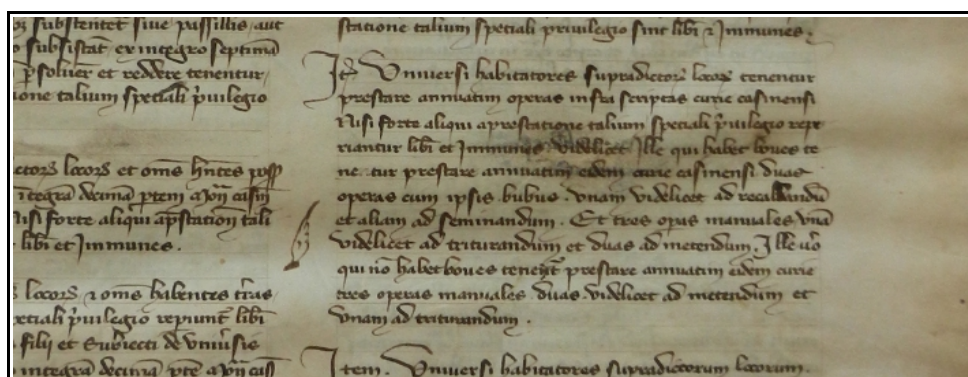 bz substentet siue passillis, aut
o subsistāt ex integro septimā
p̄soluer̄ et reddere tenentur,
ione talium speciali p̄uilegio
ctorꝝ locorꝝ et om̄s hn̄tes poss̄
ītegrā decimā ptem
Nisi forte aliqui ap̄station̄ tali
libī et Immunes.
locorꝝ ⁊ om̄s habentes t̄ras
peciali p̄uilegio repiunt̄ libī
filii et Subiecti de Vniūsis
integrā decimā ptē
statione talium speciali priuilegio sint libī ⁊ Immunes.
Itē Vniuersi habitatores supradictorꝝ locorꝝ tenentur
prestare annuatim operas infra scriptas curie casinensi
Nisi forte aliqui aprestatione talium speciali p̄uilegio repe
riantur libī et Immunes videlicet Ille qui habet boues te
ne tur prestare annuatim eidem curie casinensi duas
operas cum ipsis bubus. vnam videlicet ad recallandū
et aliam ad seminandum. Et tres opas manuales vnā
videlicet ad triturandum et duas ad metendum. Ille ūo
qui nō habet boues tenet̄ prestare annuatim eidem curie
tres operas manuales duas videlicet ad metendum et
vnam ad triturandum.
Item. Vniuersi habitatores supradictorum locorum.